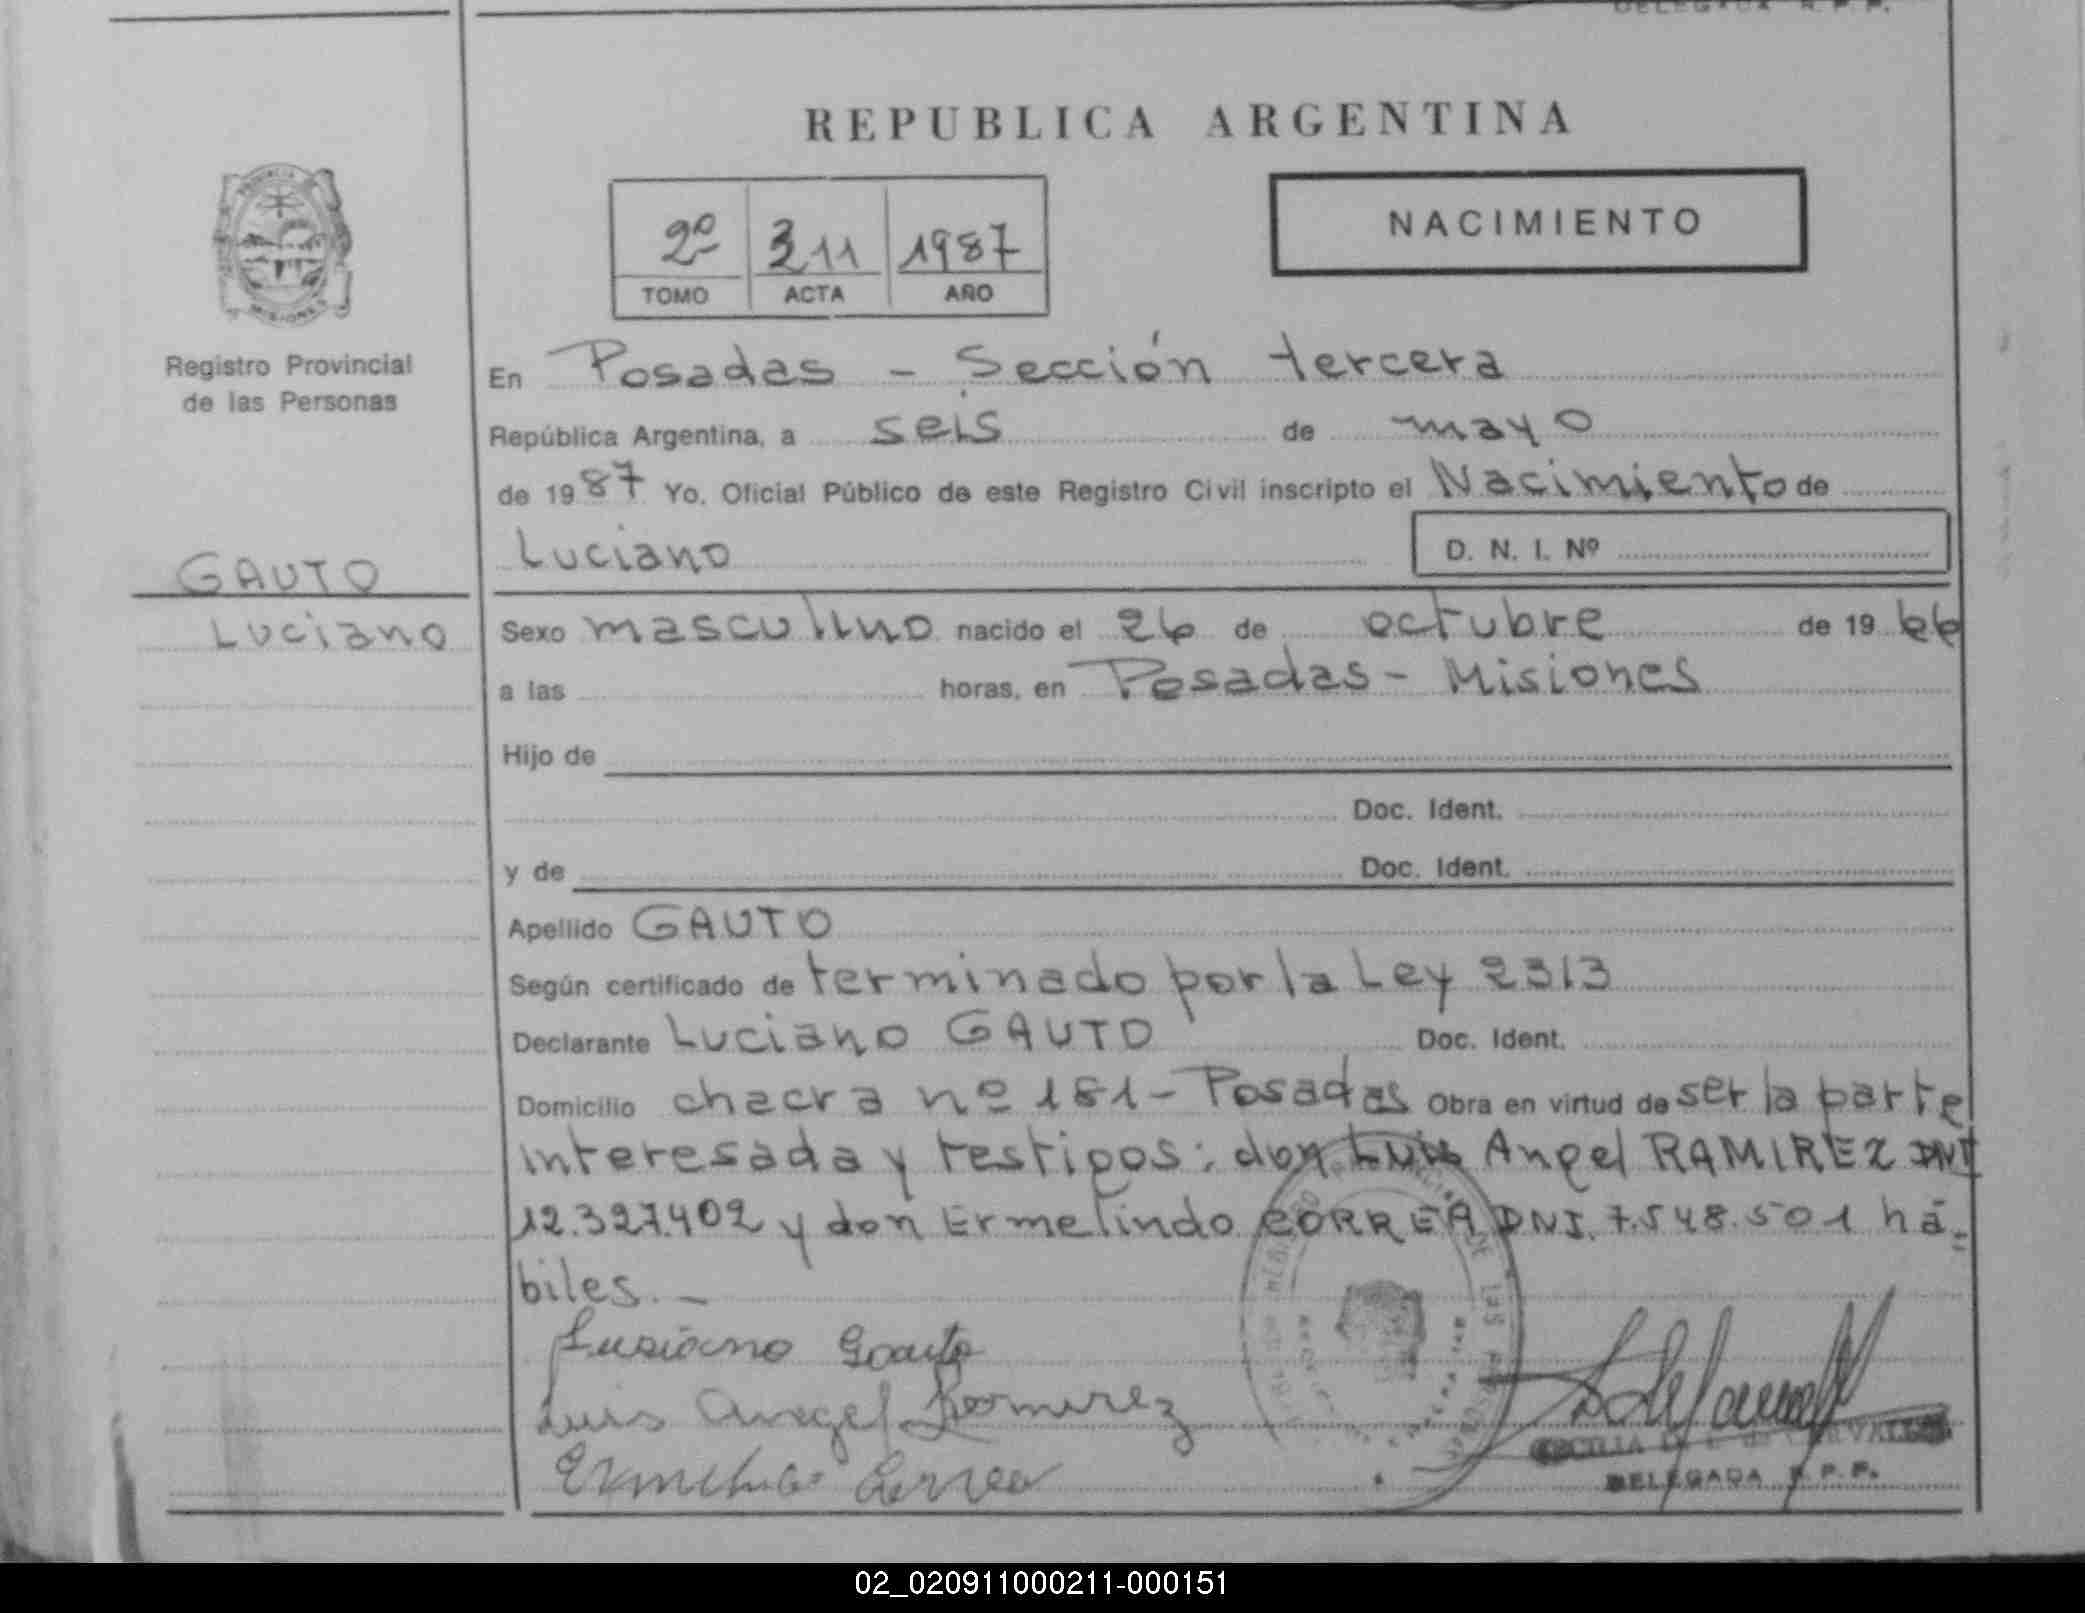 DELEGADA R. P. P.
REPUBLICA ARGENTINA
NACIMIENTO
2º 311 1987
TOMO ACTA AÑO
PROVINCIA
MISIONES
Registro Provincial
de las Personas
En Posadas - Sección tercera
República Argentina, a seis de mayo
de 1987 Yo, Oficial Público de este Registro Civil inscripto el Nacimiento de
Luciano D. N. I. Nº
GAUTO
Luciano
Sexo masculino nacido el 26 de octubre de 1966
a las horas, en Posadas - Misiones
Hijo de
Doc. Ident.
y de Doc. Ident.
Apellido GAUTO
Según certificado de terminado por la Ley 2313
Declarante Luciano GAUTO Doc. Ident.
Domicilio chacra nº 181 - Posadas Obra en virtud de ser la parte
interesada y testigos: don Luis Angel RAMIREZ DNI
12.327.402 y don Ermelindo CORREA DNI. 7.548.501 há=
biles. -
Lusiano Gauto
Luis Angel Romirez
Ermelindo Correa
DELEGADA R. P. P.
02_020911000211-000151